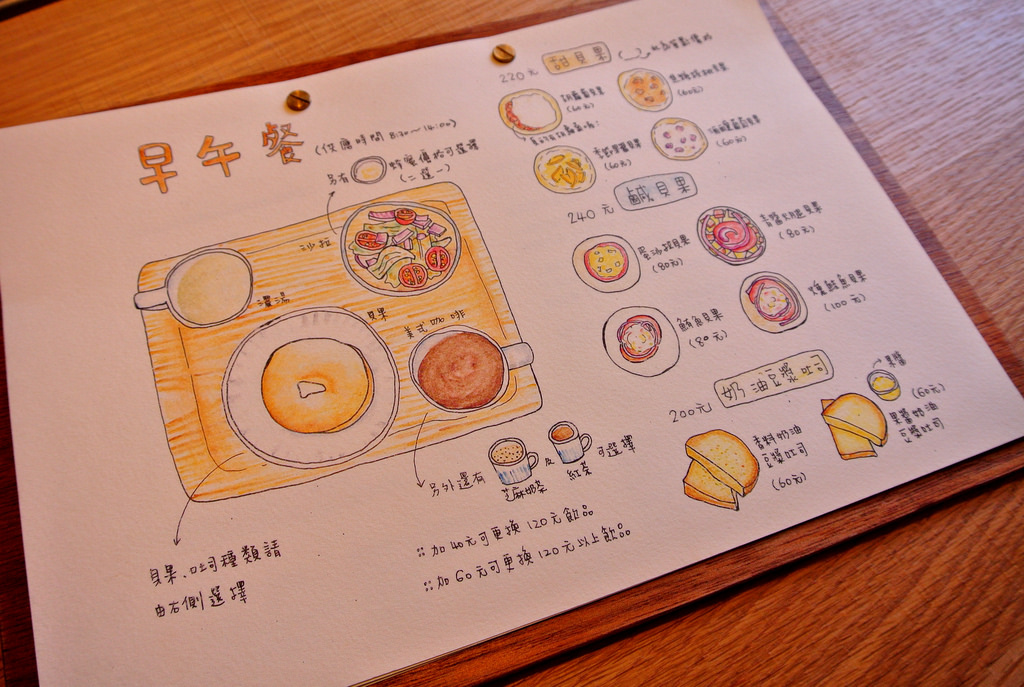 早午餐 (供應時間 8:30～14:00)
另有 蜂蜜優格可選擇
(二選一)
沙拉
濃湯
貝果
美式咖啡
另外還有
芝麻奶茶
及
紅茶
可選擇
加40元可更換120元飲品
加60元可更換120元以上飲品
貝果、吐司種類請
由右側選擇
220元 甜貝果
(60元)
(60元)
(60元)
(60元)
240元 鹹貝果
(80元)
(80元)
鮪魚貝果
(80元)
燻鮭魚貝果
(100元)
200元 奶油豆漿吐司
果醬
香料奶油
豆漿吐司
(60元)
(60元)
果醬奶油
豆漿吐司